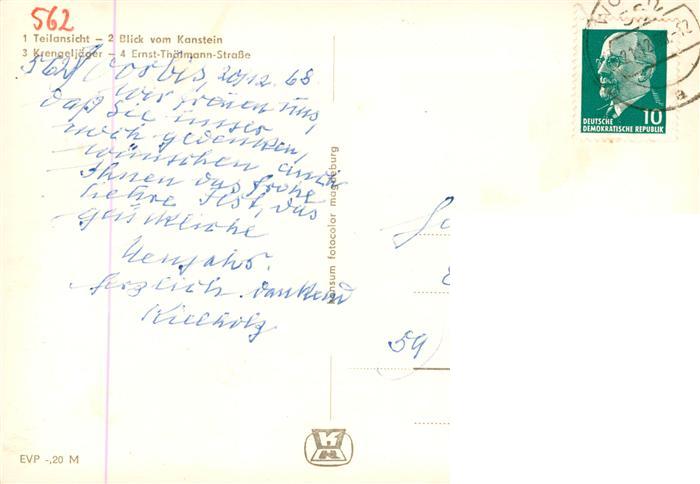 562
1 Teilansicht – 2 Blick vom Kanstein
3 Krengeljäger – 4 Ernst-Thälmann-Straße
562 Worbis, 20.12.68
Wir freuen uns,
daß Sie unser
noch gedenken,
wünschen auch
Ihnen das frohe
hehre Fest, das
glückliche
Neujahr.
Herzlich dankend
Kielholz
konsum fotocolor magdeburg
59)
EVP -,20 M
DEUTSCHE
DEMOKRATISCHE REPUBLIK
10